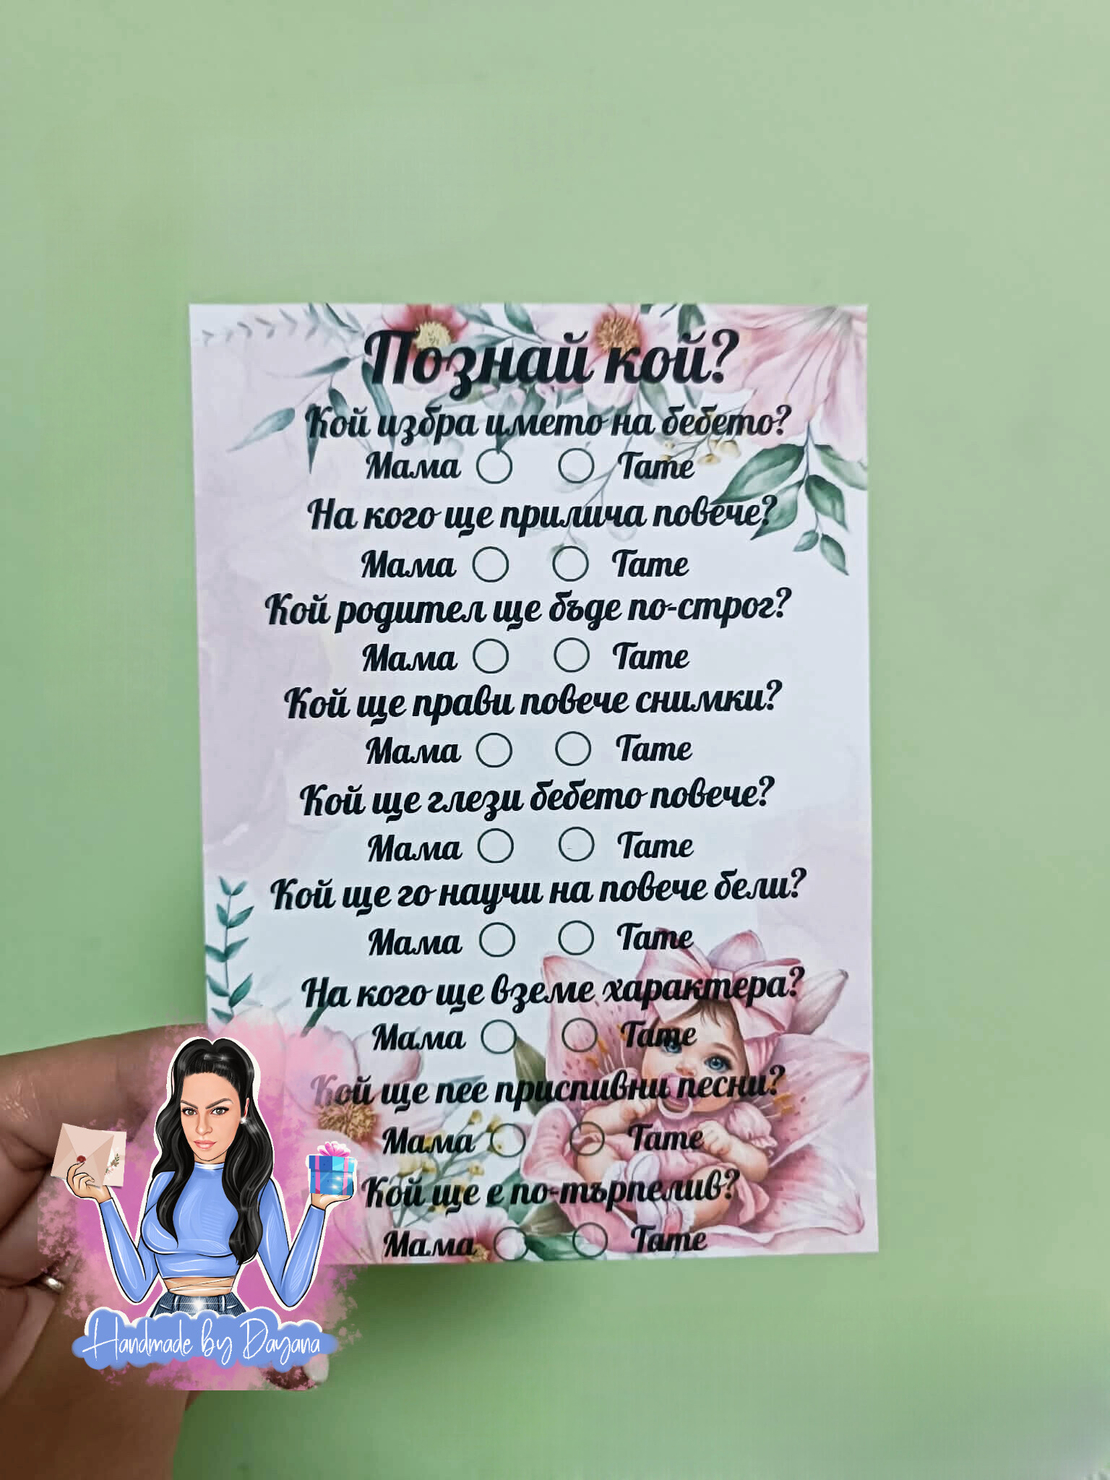 Познай кой?
Кой избра името на бебето?
Мама Тате
На кого ще прилича повече?
Мама Тате
Кой родител ще бъде по-строг?
Мама Тате
Кой ще прави повече снимки?
Мама Тате
Кой ще глези бебето повече?
Мама Тате
Кой ще го научи на повече бели?
Мама Тате
На кого ще вземе характера?
Мама Тате
Кой ще пее приспивни песни?
Мама Тате
Кой ще е по-търпелив?
Мама Тате
Handmade by Dayana